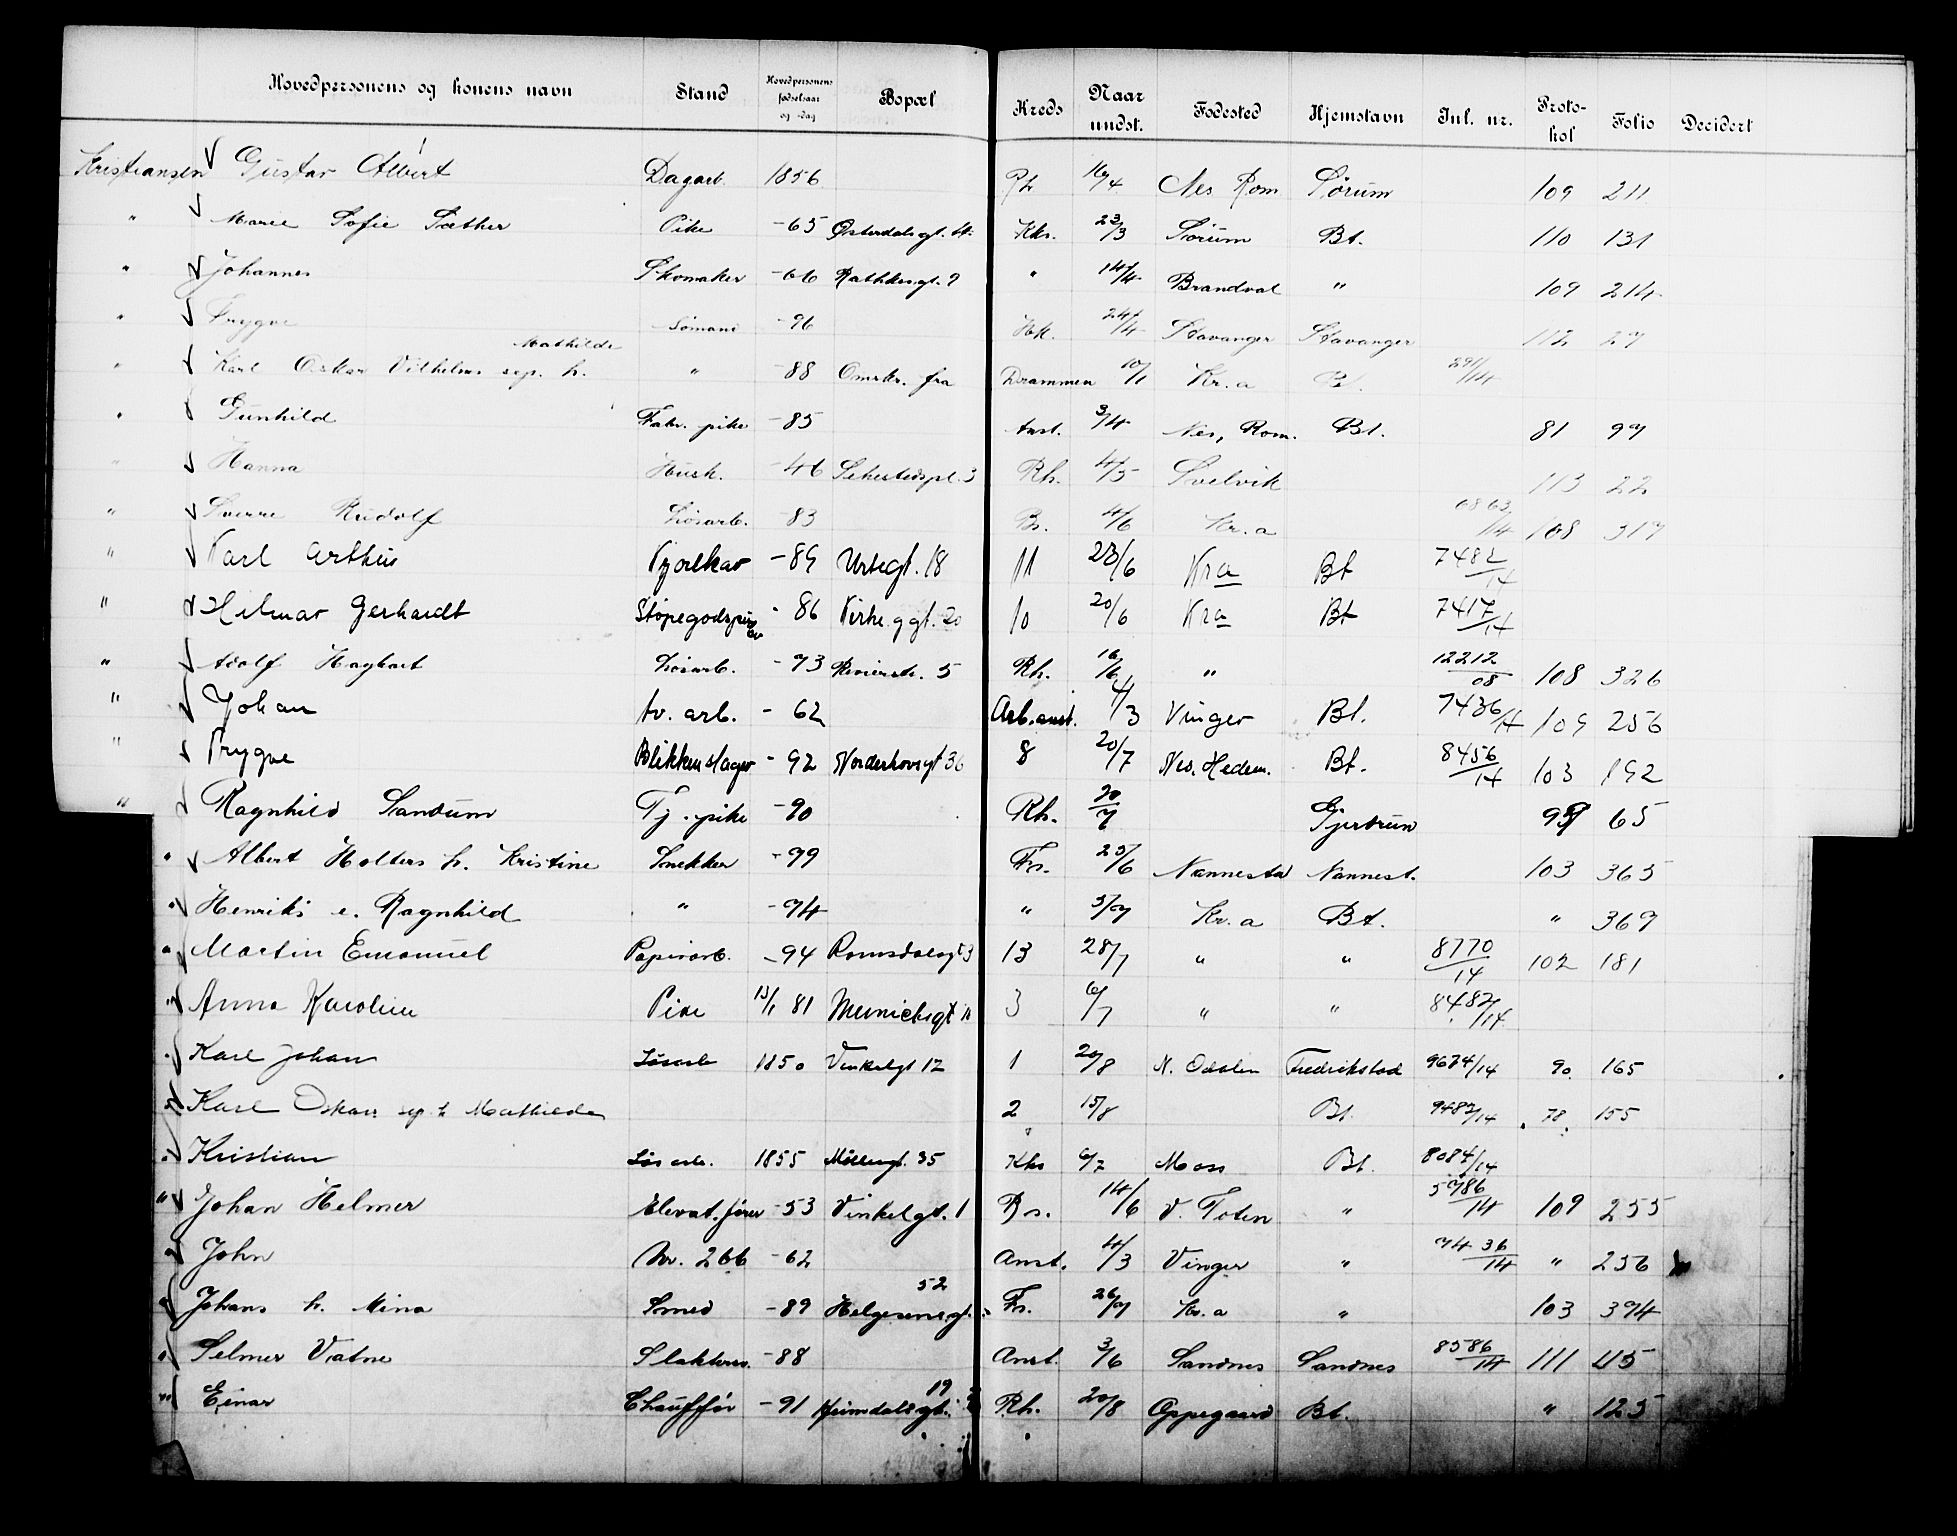 Hovedpersonens og konens navn Stand Hovedpersonens fødselsaar og -dag Bopæl Kreds Naar undst. Fødested Hjemstavn Jnl. nr. Proto-kol Folio Decidert
Kristiansen Gustav Albert Dagarb. 1856 16/4 Nes Rom. Sørum 109 211
" Marie Sofie Sæther Pike -65 Østerdalsgt. 4. Khs. 23/3 Sørum Bt. 110 131
" Johannes Skomaker -66 Rathkesgt. 9 " 14/4 Brandval " 109 214
" Trygve Sømand -96 24/4 Stavanger Stavanger 112 27
" Karl Oskar Vilhelm sep. h. Mathilde " -88 Omskr. fra Drammen 10/1 Kr.a Bt. 291/14
" Gunhild Fabr. pike -85 Anst. 3/4 Nes, Rom. Bt. 81 97
" Hanna Hush. -46 Sehestedspl. 3 Rh. 4/5 Svelvik 113 22
" Sverre Rudolf Løsarb. -83 Bs. 4/6 Kr.a /14 108 317
" Karl Arthur -89 Urtegt. 18 11 23/6 Kra Bt 7482/14
" Hilmar Gerhardt -86 Kirke.ggt. 20 10 20/6 Kra Bt 7417/14
" Adolf Hagbart Løsarb. -93 Revierstr. 5 Rh. 16/6 " 12212/08 108 326
" Johan tv. arb. - 62 Arb.anst. 4/3 Vinger Bt. 7436/14 109 256
" Trygve Blikkenslager - 92 Norderhovsgt 36 8 20/7 Nes. Hedem. Bt. 8456/14 103 192
" Ragnhild Sandum Tj. pike -90 Rh. 20/7 Gjerdrum 65
" Albert Holters h. Kristine Snekker -99 Fs. 25/6 Nannestad Nannest. 103 365
" Henriks e. Ragnhild " -94 " 3/7 Kr.a Bt. " 369
" Martin Emanuel Papirarb. -94 Romsdalsgt 3 13 28/7 " " 8770/14 102 181
" Anna Karoline Pike 13/1 81 Munichsgt 3 6/7 " " 8482/14
" Karl Johan Løsarb 1850 Vinkelgt 12 1 20/8 N. Odalen Fredrikstad 9674/14 90 165
" Karl Oskar sep h Mathilde 2 15/8 Bt. 9482/14 78 155
" Kristian Løsarb. 1855 Møllergt. 35 Khs 6/7 Moss Bt. 8084/14
" Johan Helmer Elevat. fører -53 Vinkelgt. 1 Bs. 14/6 V. Toten " 5786/14 109 255
" John Nr. 266 -62 Anst. 4/3 Vinger " 7436/14 " 256
" Johans h. Mina Smed -89 Helgesensgt. 52 Fs. 26/7 Kr.a " 103 394
" Selmer Vatne Slakter -88 Anst. 3/6 Sandnes Sandnes 8586/14 111 45
" Einar Chauffør -91 Heimdalsgt. 19 Rh. 20/8 Oppegaard Bt. " 125